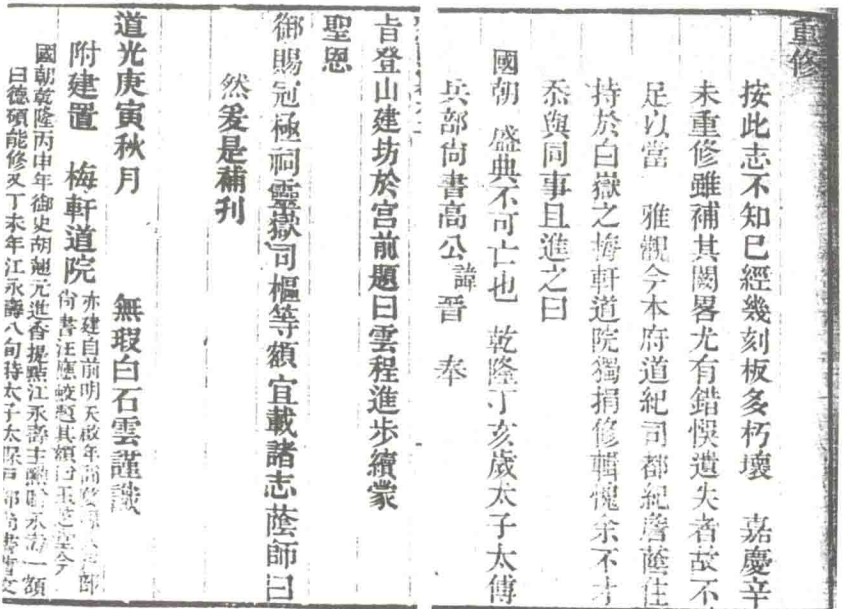 重修
按此志不知已經幾刻板多朽壞 嘉慶辛
未重修雖補其闕畧尤有錯悞遺失者故不
足以當 雅觀今本府道紀司都紀詹蔭住
持於白嶽之梅軒道院獨捐修輯愧余不才
忝與同事且進之曰
國朝 盛典不可亡也 乾隆丁亥歲太子太傅
兵部尙書高公諱晉 奉
旨登山建坊於宮前題曰雲程進步續蒙
聖恩
御賜冠極祠靈嶽司樞等額宜載諸志蔭師曰
然爰是補刋
道光庚寅秋月 無瑕白石雲謹識
附建置 梅軒道院亦建自前明天啟年
尙書汪應蛟題其額曰玉芝雲今
國朝乾隆丙申年御史胡翹元進香提點江永壽主醮贈永壽一額
曰德碩能修又丁未年江永壽八旬特太子太保戸部尙書曹文